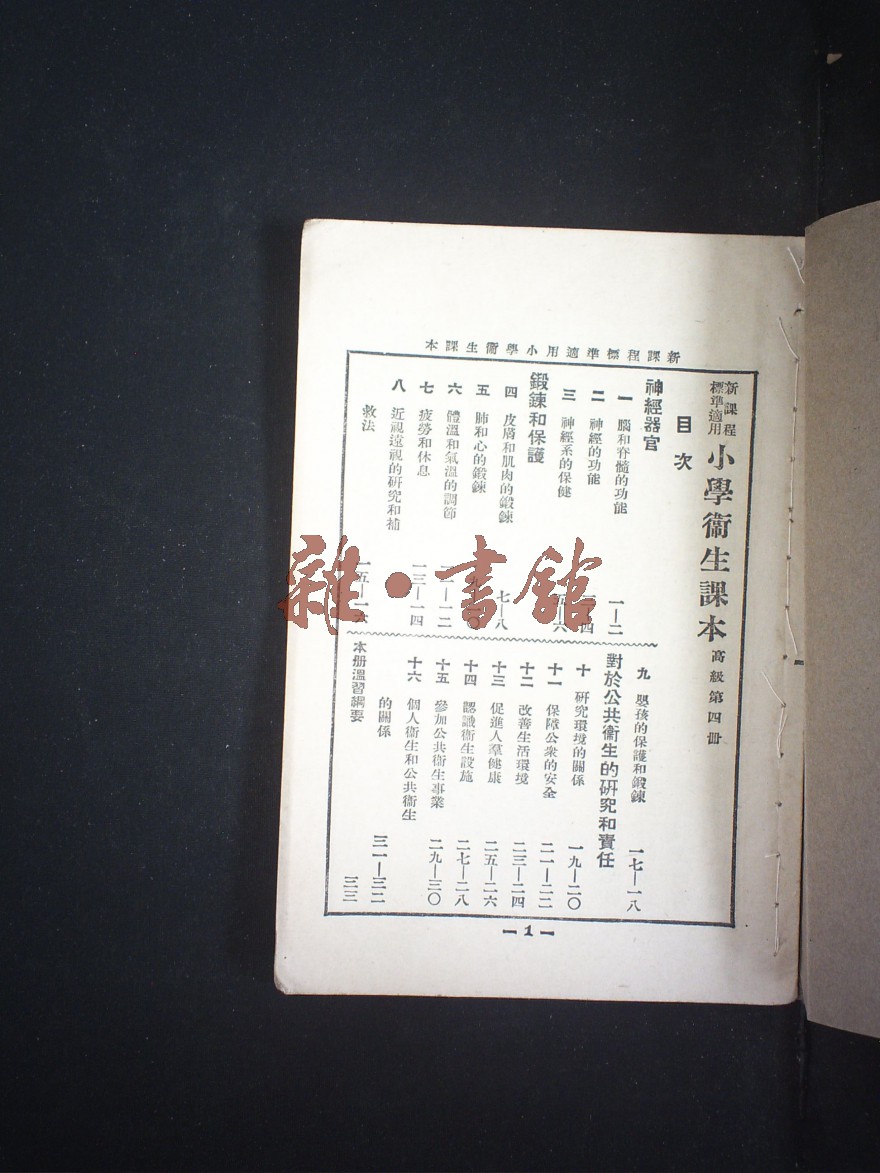 本課生衞學小用適準標程課新
新課程標準適用
小學衞生課本 高級第四冊
目次
神經器官
一 腦和脊髓的功能 一—二
二 神經的功能
三 神經系的保健
鍛鍊和保護
四 皮膚和肌肉的鍛鍊 七—八
五 肺和心的鍛鍊
六 體溫和氣溫的調節
七 疲勞和休息 一三—一四
八 近視遠視的研究和補
救法 一五—一六
九 嬰孩的保護和鍛鍊 一七—一八
對於公共衞生的研究和責任
十 研究環境的關係 一九—二〇
十一 保障公衆的安全 二一—二二
十二 改善生活環境 二三—二四
十三 促進人羣健康 二五—二六
十四 認識衞生設施 二七—二八
十五 參加公共衞生事業 二九—三〇
十六 個人衞生和公共衞生
的關係 三一—三二
本册溫習綱要 三三
—1—
雜·書館